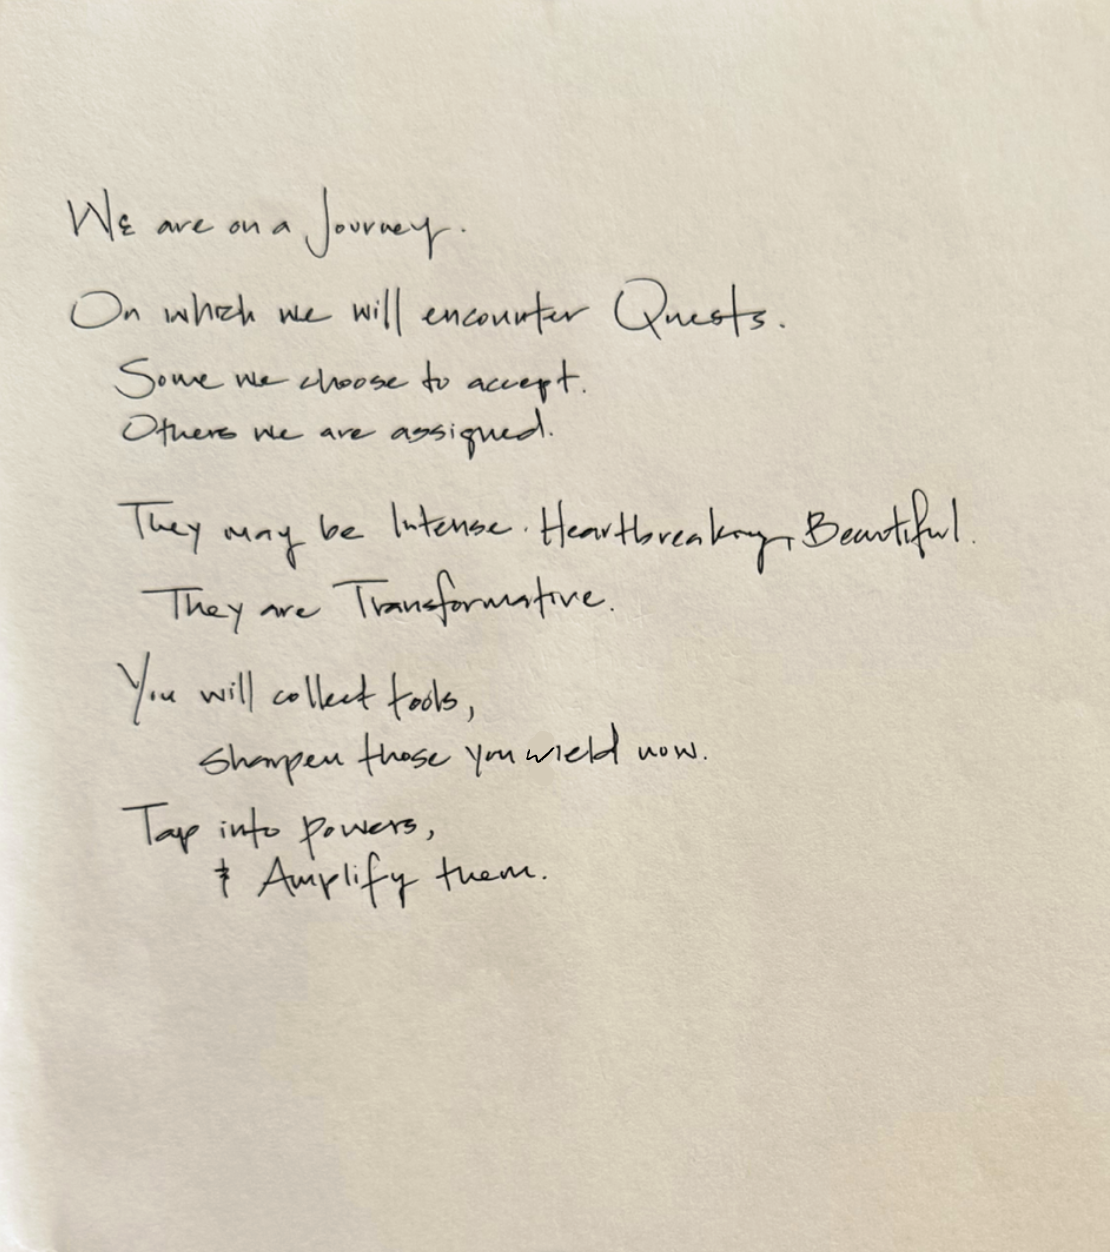 We are on a Journey.
On which we will encounter Quests.
Some we choose to accept.
Others we are assigned.
They may be Intense. Heartbreaking, Beautiful.
They are Transformative.
You will collect tools,
sharpen those you wield now.
Tap into powers,
& Amplify them.